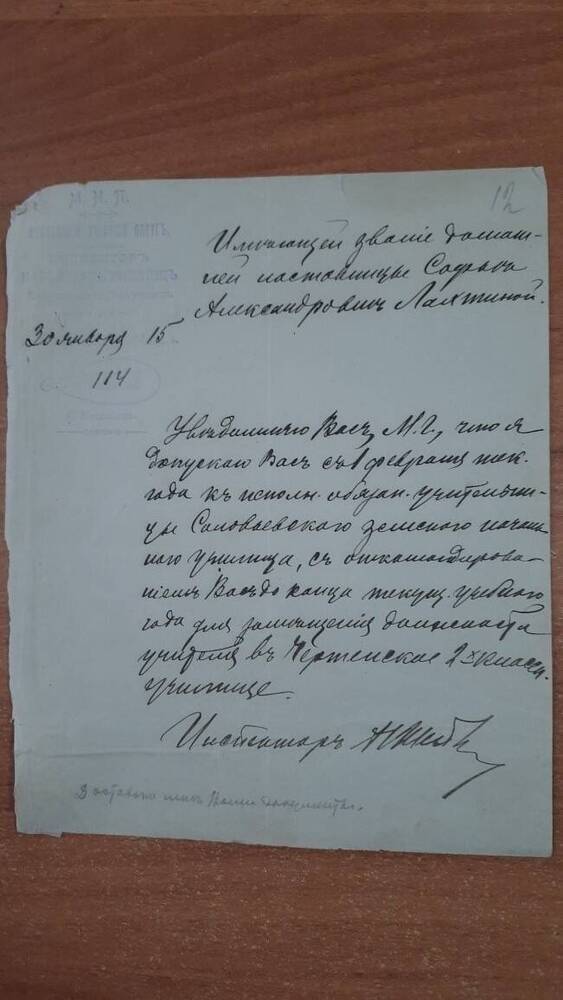 12
Имѣющей званіе домаш-
ней наставницы Софьѣ
Александровнѣ Лахтиной.
30 января 15
114
Увѣдомляю Васъ, М. Г., что я
допускаю Васъ съ 1 февраля тек.
года къ исполн. обязан. учительни-
цы Соловьевскаго земскаго началь-
наго училища, съ откомандирова-
ніемъ Васъ до конца текущ. учебнаго
года для замѣщенія должности
учителя въ 2хъ классн.
училище.
Инспекторъ
Ваши документы.